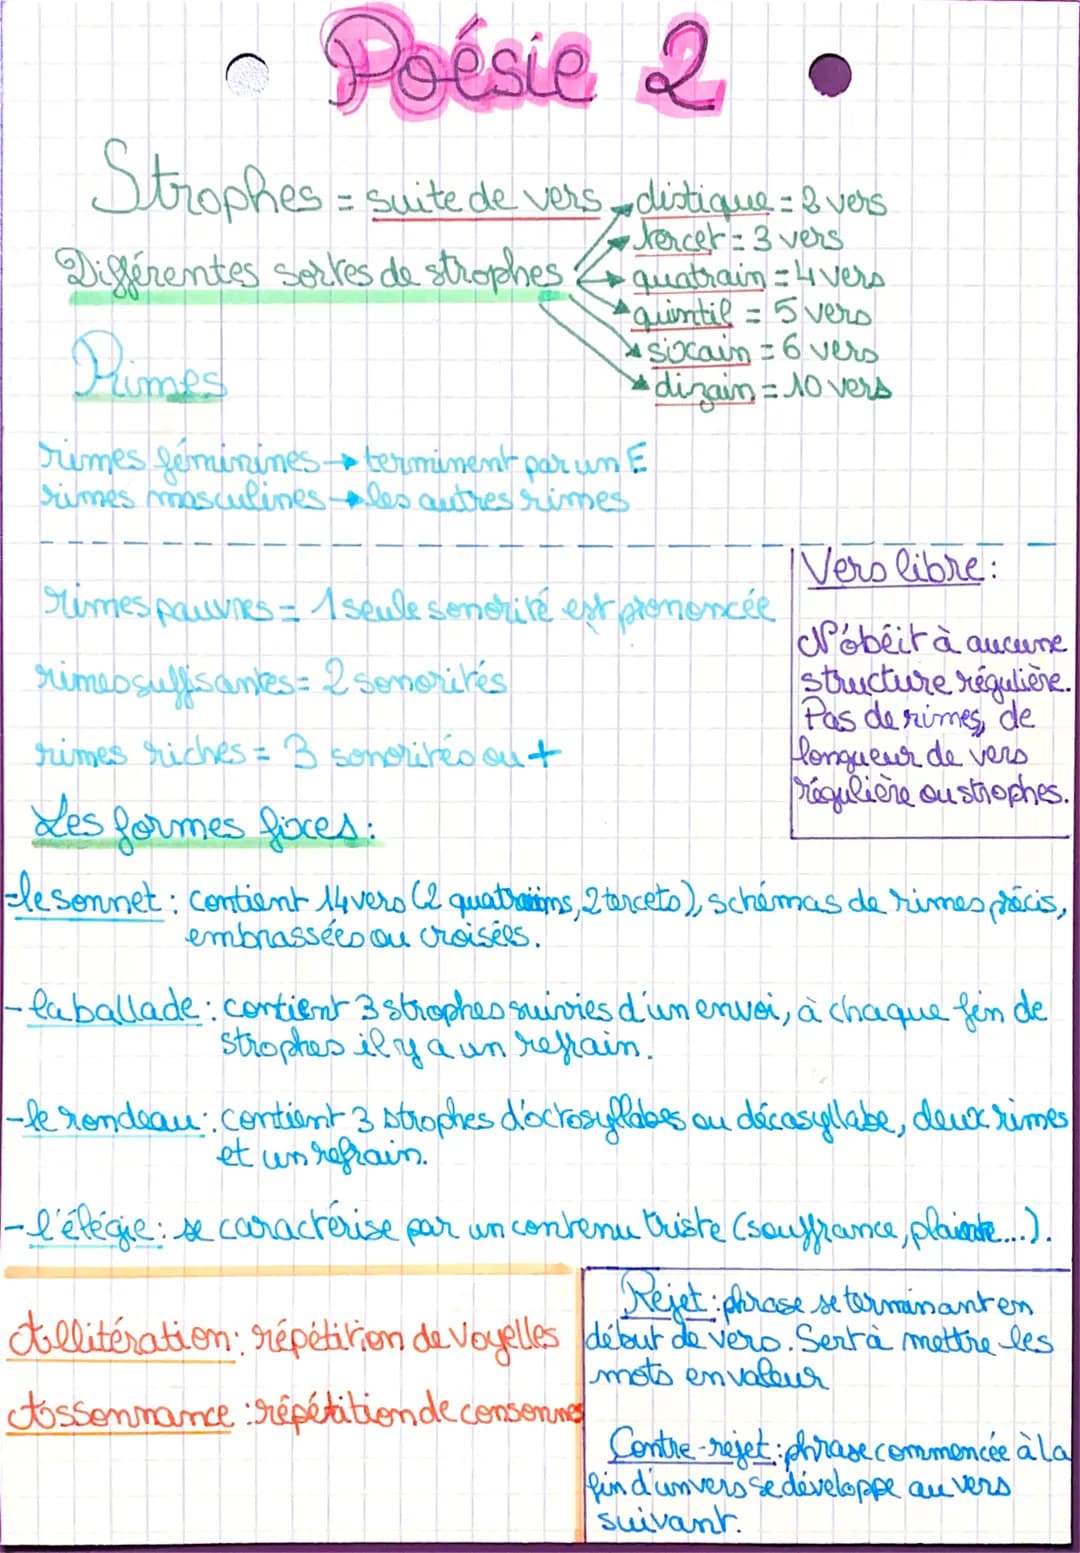 Poésie 2
Strophes = suite de vers
distique = 2 vers
Différentes sortes de strophes
tercet = 3 vers
quatrain = 4 vers
quintil = 5 vers
sixain = 6 vers
dizain = 10 vers
Rimes
rimes féminines → terminent par un E
rimes masculines → les autres rimes
rimes pauvres = 1 seule sonorité est prononcée
rimes suffisantes = 2 sonorités
rimes riches = 3 sonorités ou +
Vers libre :
N'obéit à aucune
structure régulière.
Pas de rimes, de
longueur de vers
régulière ou strophes.
Les formes fixes :
- le sonnet : contient 14 vers (2 quatrains, 2 tercets), schémas de rimes précis,
embrassées ou croisées.
- la ballade : contient 3 strophes suivies d'un envoi, à chaque fin de
strophes il y a un refrain.
- le rondeau : contient 3 strophes d'octosyllabes ou décasyllabe, deux rimes
et un refrain.
- l'élégie : se caractérise par un contenu triste (souffrance, plainte...).
Allitération : répétition de voyelles
Assonnance : répétition de consonnes
Rejet : phrase se terminant en
début de vers. Sert à mettre les
mots en valeur
Contre-rejet : phrase commencée à la
fin d'un vers se développe au vers
suivant.